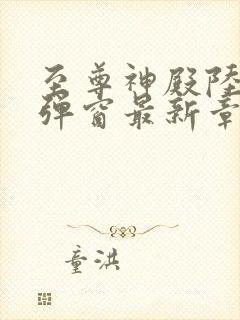 至尊神殿陸
弹窗最新章
童洪